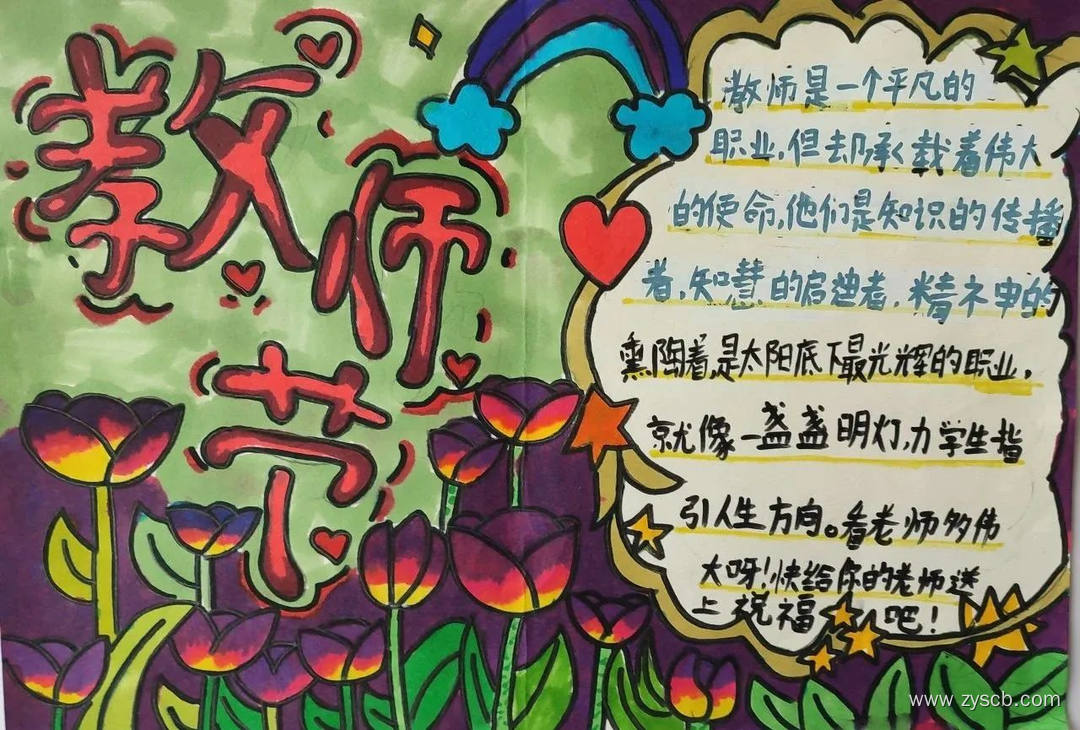 教师节
教师是一个平凡的
职业,但却承载着伟大
的使命,他们是知识的传播
者,知慧的启迪者,精神的
熏陶着,是太阳底下最光辉的职业,
就像一盏盏明灯,为学生指
引人生方向。看老师多伟
大呀!快给你的老师送
上祝福吧!
www.zyscb.com